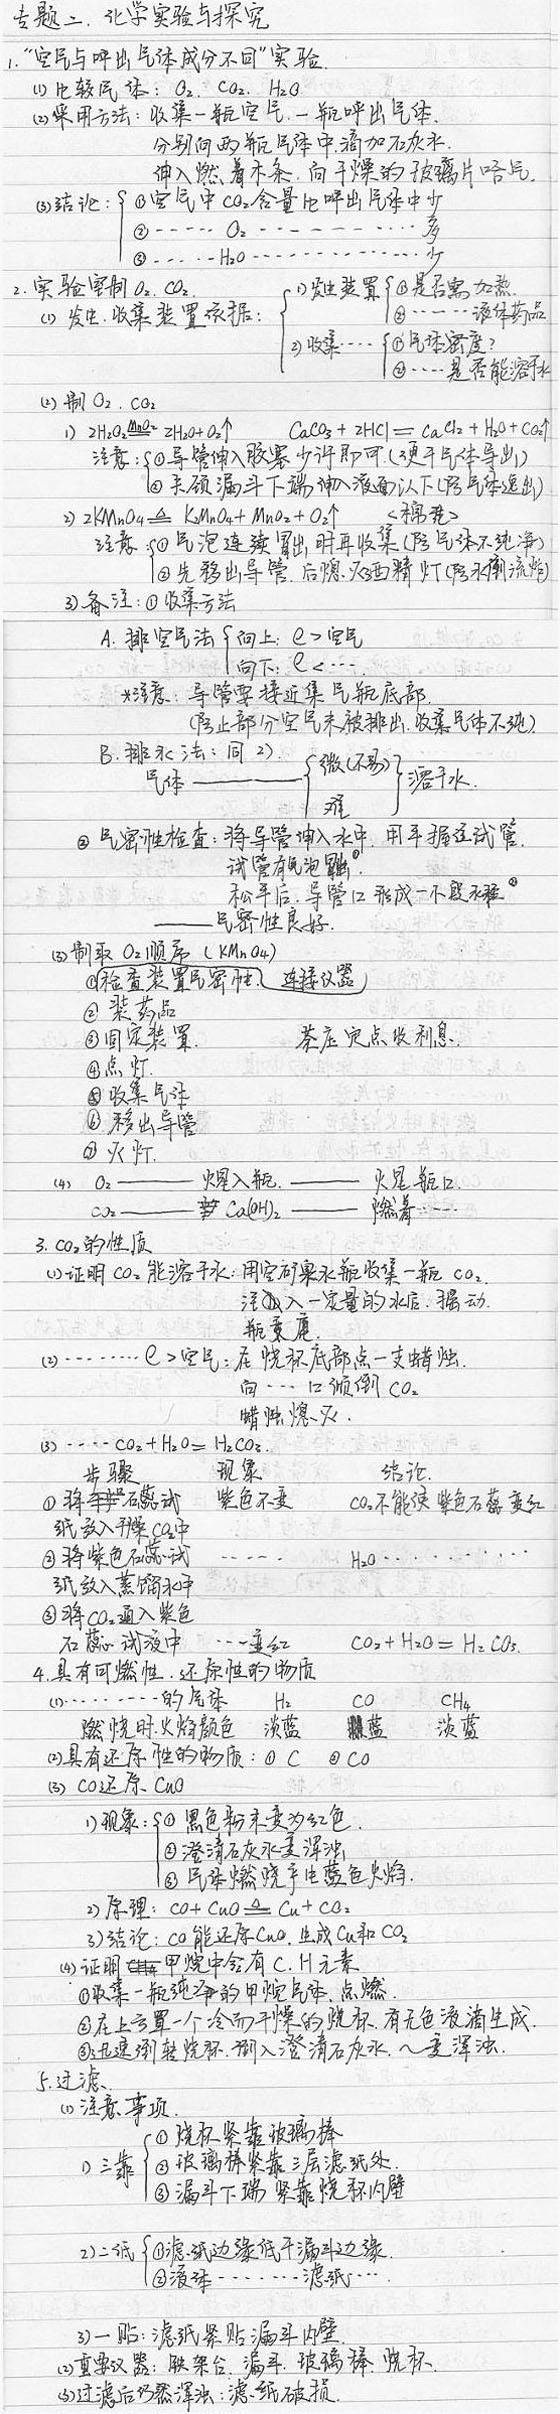 专题二、化学实验与探究
1."空气与呼出气体成分不同"实验.
(1) 比较气体: O₂. CO₂. H₂O
(2)采用方法: 收集一瓶空气.一瓶呼出气体.
分别向两瓶气体中滴加石灰水.
伸入燃着木条.向干燥的玻璃片哈气.
(3)结论: ①空气中CO₂含量比呼出气体中少
②----- O₂ ---------- 多
③-----H₂O---------- 少
2.实验室制O₂.CO₂.
(1) 发生.收集装置依据:
1)发生装置 ①是否需加热.
②------液体药品
2)收集---- ①气体密度?
②----是否能溶于水
(2) 制O₂.CO₂
1) 2H₂O₂ MnO₂ 2H₂O+O₂↑ CaCO₃+2HCl=CaCl₂+H₂O+CO₂↑
注意: ①导管伸入胶塞少许即可.(便于气体导出)
②长颈漏斗下端伸入液面以下(防气体逸出)
2) 2KMnO₄ △ K₂MnO₄+MnO₂+O₂↑ <棉花>
注意: ①气泡连续冒出时再收集(防气体不纯净)
②先移出导管.后熄灭酒精灯(防水倒流炸)
3)备注:①收集方法
A. 排空气法 向上: ρ>空气
向下: ρ<---
*注意: 导管要接近集气瓶底部.
(防止部分空气未被排出.收集气体不纯).
B. 排水法: 同2).
气体———— 微(不易) 溶于水.
难
②气密性检查: 将导管伸入水中.用手握住试管.
试管有气泡冒出①.
松手后.导管口形成一小段水柱②
———气密性良好.
(3)制取O₂顺序(KMnO₄)
①检查装置气密性. 连接仪器
②装药品
③固定装置. 茶庄定点收利息.
④点灯.
⑤收集气体
⑥移出导管
⑦灭灯.
(4) O₂———火星入瓶.———火星瓶口.
CO₂——— Ca(OH)₂———燃着----
3.CO₂的性质
(1)证明CO₂能溶于水: 用空矿泉水瓶收集一瓶CO₂.
注入一定量的水后.振动.
瓶变扁.
(2)------- ρ>空气: 在烧杯底部点一支蜡烛.
向---口倾倒CO₂
蜡烛熄灭.
(3)----CO₂+H₂O=H₂CO₃.
步骤 现象 结论.
①将石蕊试 紫色不变 CO₂不能使紫色石蕊变红
纸放入干燥CO₂中
②将紫色石蕊试 ----- H₂O----------
纸放入蒸馏水中
③将CO₂通入紫色
石蕊试液中 ---变红 CO₂+H₂O=H₂CO₃.
4.具有可燃性.还原性的物质
(1)--------的气体 H₂ CO CH₄
燃烧时.火焰颜色 淡蓝 蓝 淡蓝
(2)具有还原性的物质:①C ②CO
(3) CO还原CuO
1)现象: ①黑色粉末变为红色.
②澄清石灰水变浑浊
③气体燃烧产生蓝色火焰.
2)原理: CO+CuO △ Cu+CO₂
3)结论: CO能还原CuO.生成Cu和CO₂
(4)证明甲烷中含有C.H元素
①收集一瓶纯净的甲烷气体.点燃.
②在上方罩一个冷而干燥的烧杯.有无色液滴生成.
③迅速倒转烧杯.倒入澄清石灰水.~变浑浊.
5.过滤
(1)注意事项.
1)三靠 ①烧杯紧靠玻璃棒
②玻璃棒紧靠三层滤纸处.
③漏斗下端紧靠烧杯内壁
2)二低 ①滤纸边缘低于漏斗边缘.
②液体-------滤纸---
3)一贴: 滤纸紧贴漏斗内壁.
(2)重要仪器: 铁架台.漏斗.玻璃棒.烧杯.
(3)过滤后仍然浑浊:滤纸破损.